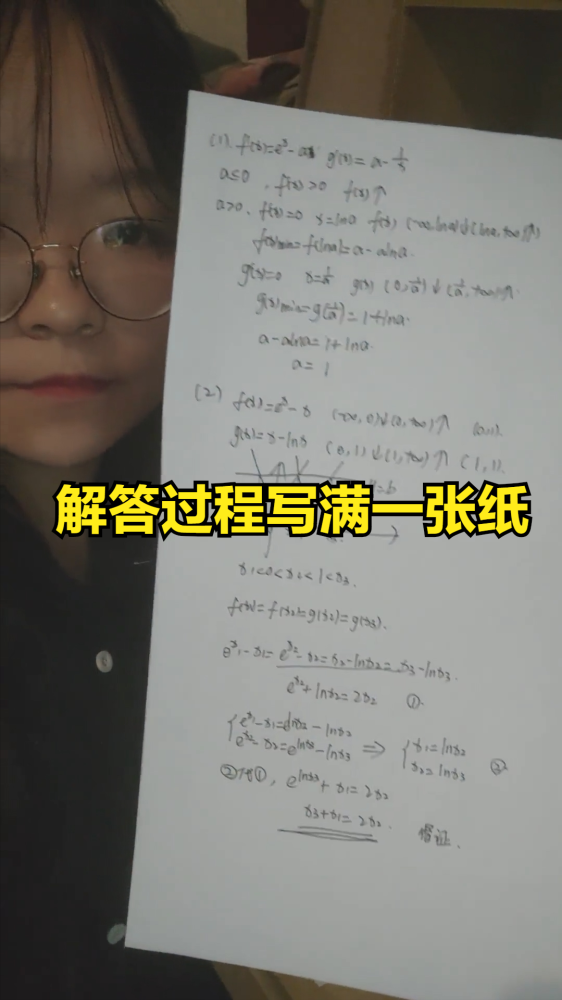 (1). f'(x)=e^x-a g'(x)=a-1/x
a≤0, f'(x)>0 f(x)↑
a>0, f'(x)=0 x=lna f(x) (-∞,lna)↓(lna,+∞)↑
f(x)min=f(lna)=a-alna.
g'(x)=0 x=1/a g(x) (0,1/a)↓(1/a,+∞)↑
g(x)min=g(1/a)=1+lna.
a-alna=1+lna.
a=1
(2) f(x)=e^x-x (-∞,0)↓(0,+∞)↑ (0,1).
g(x)=x-lnx (0,1)↓(1,+∞)↑ (1,1).
=b
解答过程写满一张纸
x₁<0<x₂<1<x₃.
f(x₁)=f(x₂)=g(x₂)=g(x₃).
e^x₁-x₁=e^x₂-x₂=x₂-lnx₂=x₃-lnx₃.
e^x₂+lnx₂=2x₂ ①.
{e^x₁-x₁=e^lnx₂-lnx₂
e^x₂-x₂=e^lnx₃-lnx₃ ⇒ {x₁=lnx₂
x₂=lnx₃ ②
②代①, e^lnx₃+x₁=2x₂
x₃+x₁=2x₂. 得证.